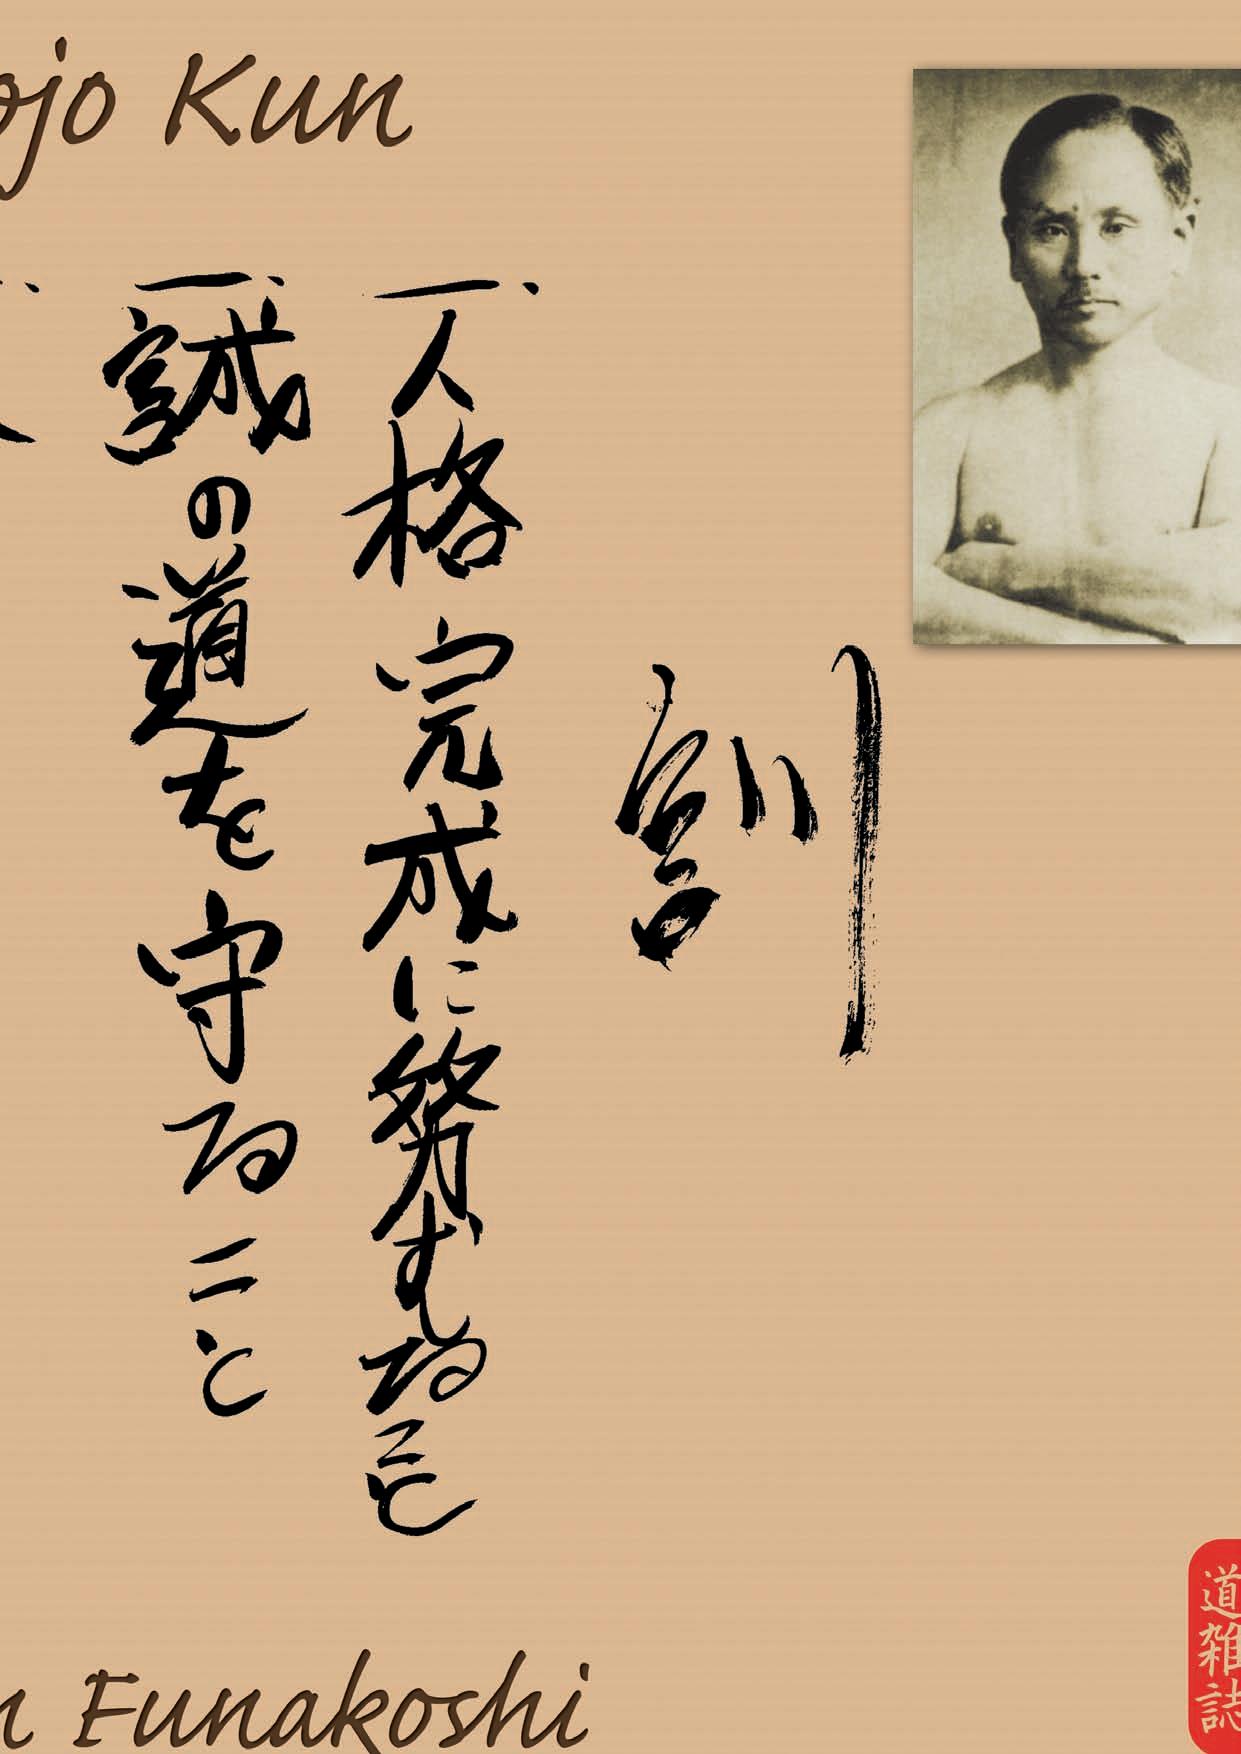 ojo Kun
訓
一、人格完成に努むること
一、誠の道を守ること
n Funakoshi
道雑誌